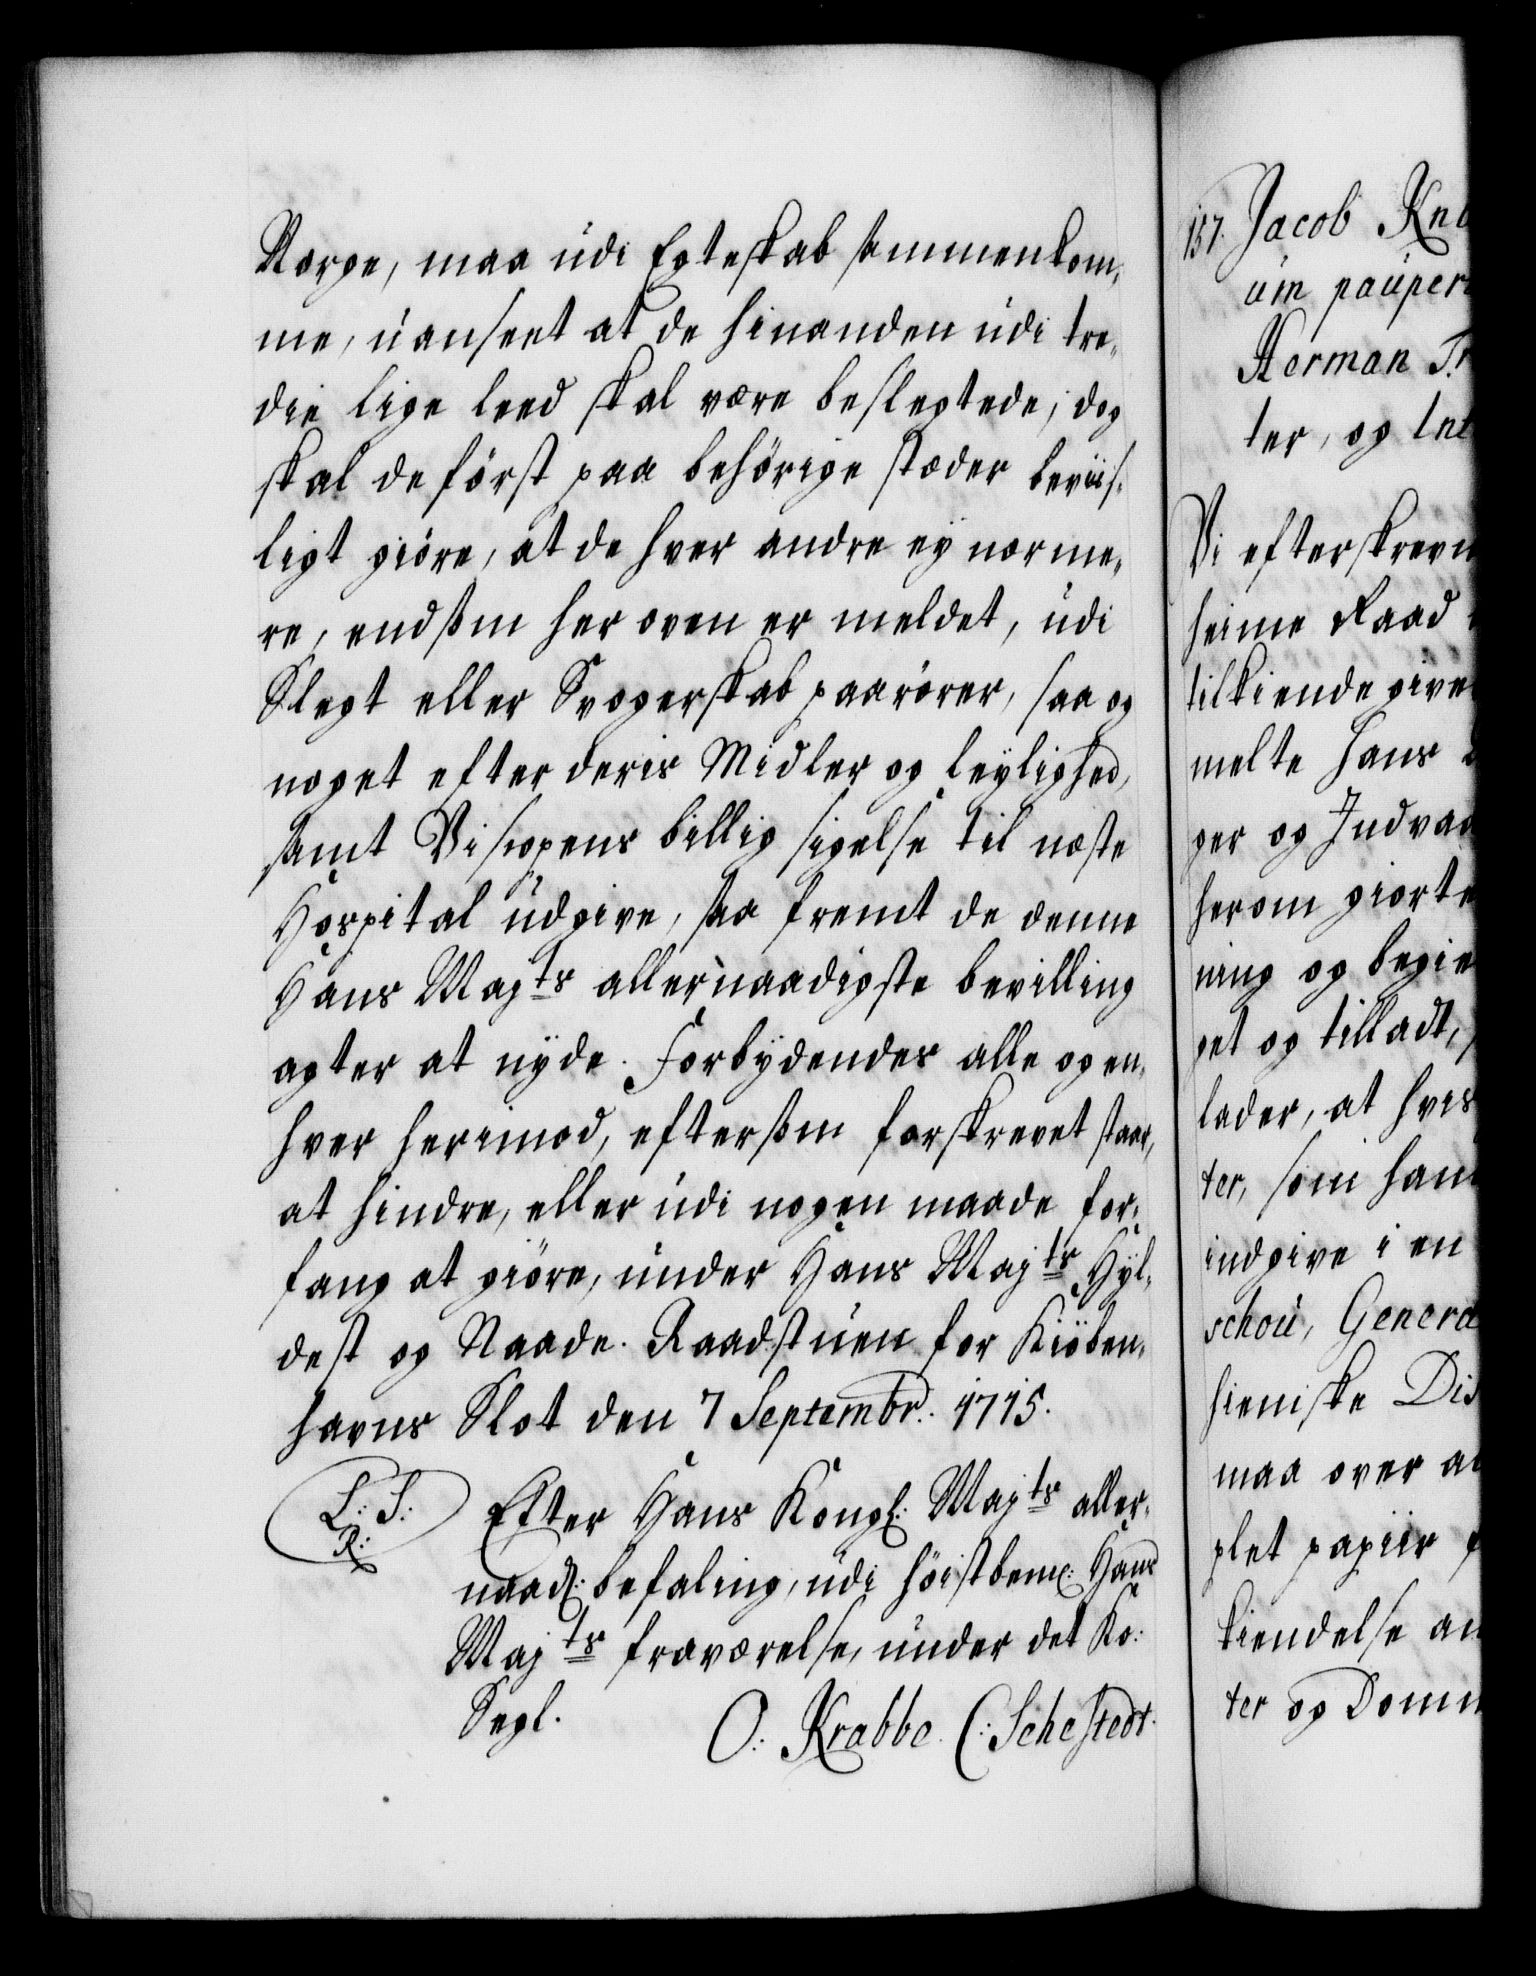 Norge, maa udi Egteskab sammenkom-
me, uanseet at de hinanden udi tre-
die lige leed skal være beslegtede, dog
skal de først paa behörige stæder beviis-
ligt giöre, at de hver andre ey nærme-
re, end som her oven er meldet, udi
Slegt eller Svogerskab paarörer, saa og
noget efter deris Midler og leylighed,
samt Biscopens billig sigelse til næste
Hospital udgive, saa fremt de denne
Hans Majts allernaadigste bevilling
agter at nyde. Forbydendes alle og en-
hver herimod, eftersom forskrevet staar,
at hindre, eller udi nogen maade for-
fang at giöre, under Hans Majts Hyl-
dest og Naade. Raadstuen for Kiöben-
havns Slot den 7 Septembr: 1715.
L: S:
R:
Efter Hans Kongl: Majts aller-
naad: befaling, udi höistbem: Hans
Majts fraværelse, under det Ko:
Segl.
O: Krabbe. C: Sehestedt.
157. Jacob Kn
um pauper
Herman Tr
ter, og Int
Vi efterskrevn
heime Raad
tilkiendegive
melte Hans
ger og Indvaa
herom giorte
ning og begie
get og tilladt,
lader, at hvis
ter, som han
indgive i en
schou, Genera
hiemske Dis
maa over a
plet papiir
kiendelse an
ter og Domm